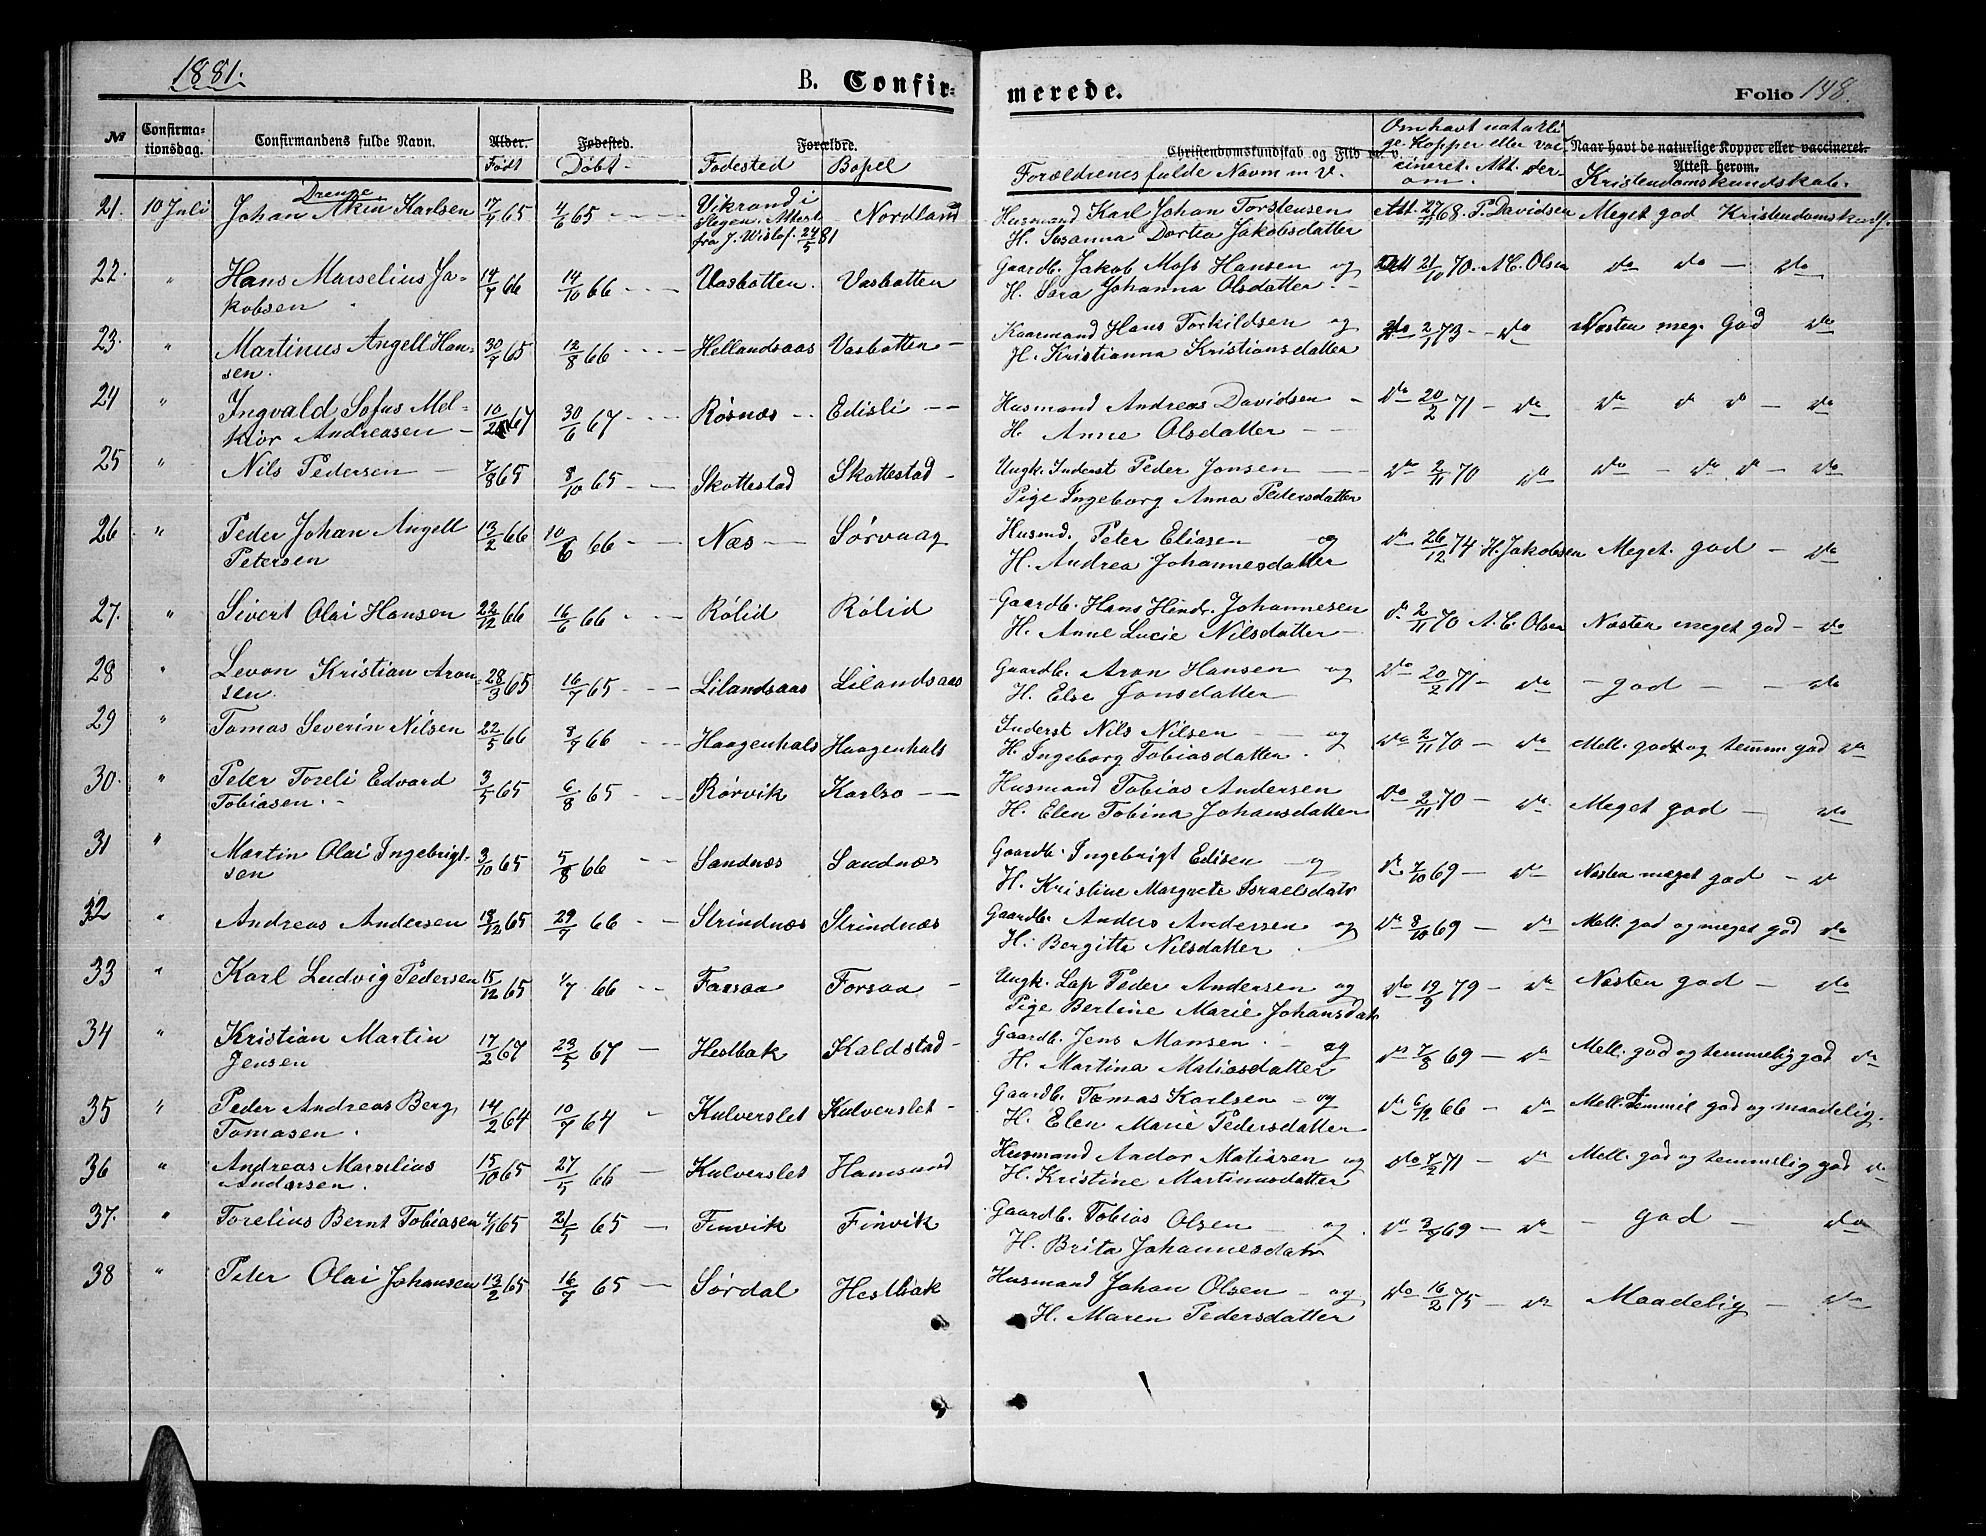 1881. B. Confir-
merede. Folio 148.
№ Confirma-tionsdag. Confirmandens fulde Navn. Alder. Født Fødested. Døbt Forældre. Fødested Bopel
Christendomskundskab og Flid m. v. Forældrenes fulde Navn m. V. Om havt naturli ge Kopper eller vac cineret. Att. der om. Naar havt de naturlige Kopper eller vaccineret. Attest herom. Kristendomskundskab.
Drenge
21. 10 Juli Johan Akin Karlsen 17/1 65 4/6 65 - - - Vikrand i Nordland Husmand Karl Johan Torstensen Att. 27/11 68. P. Davidsen Meget god Kristendomskundsk.
Stegen. Attest
fra J. Wisløf. 24/5 81 H. Susanna Dortea Jakobsdatter
22. " Hans Marselius Ja- 14/7 66 14/10 66 - - - Vasbotten. Vasbotten Gaardb. Jakob Moss Hansen og Att 21/10 70. A. C. Olsen do do - do
kobsen H. Sara Johanna Olsdatter. -
23. " Martinus Angell Han- 30/7 65 12/8 66 - - - Hellandsaas Vasbotten - Kaarmand Hans Torkildsen og do 2/1 73 - do Nesten meg. God do
sen. H. Kristianna Kristiansdatter
24 " Ingvald Sofus Mel- 10/2 67 30/6 67 - - Røsnæs - Edisli - - Husmand Andreas Davidsen - do 20/2 71 - do do d d - do
kior Andreasen - H. Anne Olsdatter - -
25 " Nils Pedersen - 7/8 65 8/10 65 - - Skottestad Skottestad - Ungk. Inderst Peder Jonsen - - do 2/11 70 do do - do d - do
Pige Ingeborg Anna Pedersdatter
26 " Peder Johan Angell 13/2 66 10/6 66 - - Næs - Sørvaag Husmd. Peter Eliasen og do 26/12 74 H. Jakobsen Meget god - do
Petersen H. Andrea Johannesdatter
27. " Sivert Olai Hansen 22/12 66 16/6 66 - - - Rølid Rølid Gaardb. Hans Hindr. Johannesen d. 2/11 70 A. C. Olsen Nesten meget god - do
H. Anne Lucie Nilsdatter -
28 " Levon Kristian Aron- 28/3 65 16/7 65 - - Lilandsaas Lilandsaas Gaardb. Aron Hansen og do 20/2 71 - do - god - - do
sen. H. Else Jonsdatter
29 " Tomas Severin Nilsen 22/5 66 8/7 66 - - Haagenhals Haagenhals Inderst Nils Nilsen - og do 2/11 70 - do Mell. god og temm god do
H. Ingeborg Tobiasdatter
30. " Peter Toreli Edvard 3/5 65 6/8 65 - - Rørvik Karlsø - - Husmand Tobias Andersen do 2/11 70 - do Meget god - do
Tobiasen. - H. Elen Tobina Johansdatter
31 " Martin Olai Ingebrigt- 3/10 65 5/8 66 - - Sandnæs Sandnæs Gaardb. Ingebrigt Edisen - og do 7/10 69 - do Nesten meget god - do
sen H. Kristine Margrete Israelsdatr
32 " Andreas Andersen 18/12 65 29/7 66 - - Strindnæs Strindnæs Gaardb. Anders Andersen og do 8/10 69 - do Mell. god og meget god do
H. Bergitte Nilsdatter
33 " Karl Ludvig Pedersen 15/12 65 1/7 66 - - Forsaa Forsaa - Ungk. Lap Peder Andersen og do 19/9 79 - do Nesten god - do
Pige Berline Marie Johansdatr
34 " Kristian Martin 17/2 67 29/5 67 - Hestbak Kaldstad - Gaardb. Jens Monsen - og do 7/8 69 - do Mell. god og temmelig god do
Jensen H. Martina Matiasdatter
35 " Peder Andreas Berg 14/2 64 10/7 64 - Kulverslet Kulverslet - Gaardb. Tomas Karlsen - og do 6/12 66 - do Mell. Temmil god og maadelig.
Tomasen. H. Elen Marie Pedersdatter
36 " Andreas Marselius 15/10 65 27/5 66 - Kulverslet Hamsund Husmand Andor Matisen og do 7/2 71 - do Mell. god og temmelig god do
Andorsen. H. Kristine Martinusdatter
37. " Torelius Bernt Tobiasen 4/1 65 21/5 65 - Finvik Finvik Gaardb. Tobias Olsen og do 3/9 69 - do - god - do
H. Brita Johannesdatr
38 " Peter Olai Johansen 13/2 65 16/7 65 - Sørdal Hestbak Husmand Johan Olsen - og do 16/2 75 - do Maadelig - do
H. Maren Pedersdatter